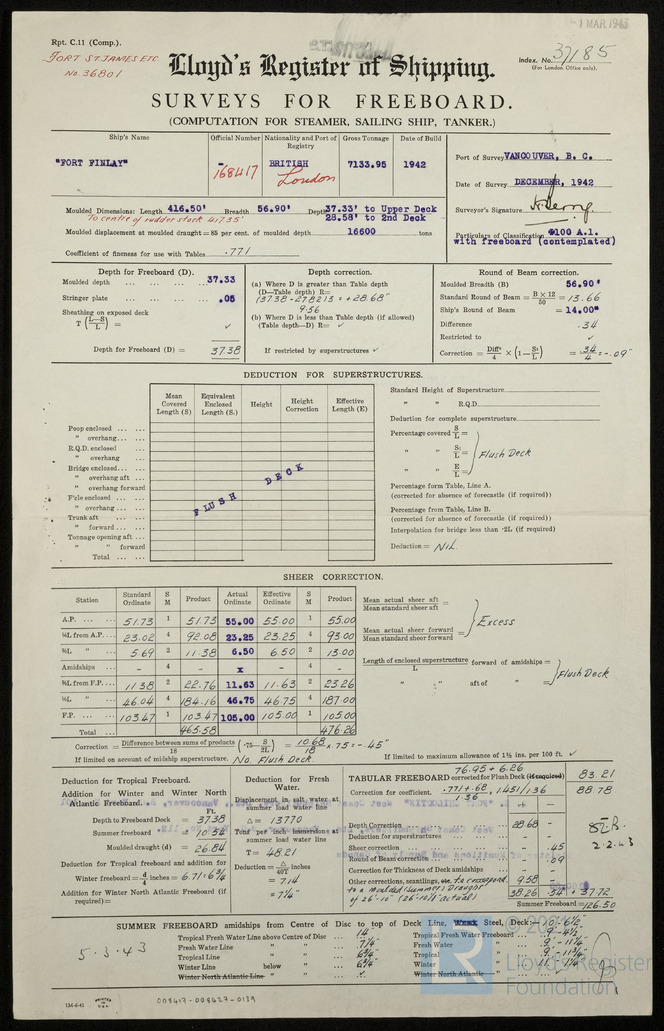 Rpt. C.11 (Comp.).
- 1 MAR 1943
FORT ST. JAMES ETC
No. 36801
Lloyd's Register of Shipping.
Index. No. 37185
(For London Office only).
SURVEYS FOR FREEBOARD.
(COMPUTATION FOR STEAMER, SAILING SHIP, TANKER.)
Ship's Name Official Number Nationality and Port of Registry Gross Tonnage Date of Build
"FORT FINLAY" 168417 BRITISH London 7133.95 1942
Port of Survey VANCOUVER, B. C.
Date of Survey DECEMBER, 1942
Surveyor's Signature
Particulars of Classification 100 A.1.
with freeboard (contemplated)
Moulded Dimensions: Length 416.50' Breadth 56.90' Depth 37.33' to Upper Deck
To centre of rudder stock 417.35' 28.58' to 2nd Deck
Moulded displacement at moulded draught = 85 per cent. of moulded depth 16600 tons
Coefficient of fineness for use with Tables .771
Depth for Freeboard (D).
Moulded depth ... ... ... ... 37.33
Stringer plate ... ... ... ... .05
Sheathing on exposed deck
T (L-S/L) = ✓
Depth for Freeboard (D) = 37.38
Depth correction.
(a) Where D is greater than Table depth
(D—Table depth) R=
(37.38 - 27.82)3 = + 28.68"
9.56
(b) Where D is less than Table depth (if allowed)
(Table depth—D) R= ✓
If restricted by superstructures ✓
Round of Beam correction.
Moulded Breadth (B) 56.90'
Standard Round of Beam = B × 12 / 50 = 13.66
Ship's Round of Beam = 14.00"
Difference .34
Restricted to ✓
Correction = Diffce/4 × (1 - S₁/L) = .34/4 = -.09"
DEDUCTION FOR SUPERSTRUCTURES.
Mean Covered Length (S) Equivalent Enclosed Length (S₁) Height Height Correction Effective Length (E)
Poop enclosed ... ...
" overhang... ...
R.Q.D. enclosed ...
" overhang ...
Bridge enclosed... ...
" overhang aft ...
" overhang forward
F'cle enclosed ... ...
" overhang ... ...
Trunk aft ... ...
" forward ... ...
Tonnage opening aft ...
" " forward
Total ... ...
FLUSH DECK
Standard Height of Superstructure
" " R.Q.D.
Deduction for complete superstructure
Percentage covered S/L =
" " S₁/L = Flush Deck
" " E/L =
Percentage from Table, Line A.
(corrected for absence of forecastle (if required))
Percentage from Table, Line B.
(corrected for absence of forecastle (if required))
Interpolation for bridge less than ·2L (if required)
Deduction = Nil.
SHEER CORRECTION.
Station Standard Ordinate S M Product Actual Ordinate Effective Ordinate S M Product
A.P. ... ... 51.73 1 51.73 55.00 55.00 1 55.00
⅙L from A.P... 23.02 4 92.08 23.25 23.25 4 93.00
⅓L " ... 5.69 2 11.38 6.50 6.50 2 13.00
Amidships ... - 4 - x - 4 -
⅓L from F.P... 11.38 2 22.76 11.63 11.63 2 23.26
⅙L " ... 46.04 4 184.16 46.75 46.75 4 187.00
F.P. ... ... 103.47 1 103.47 105.00 105.00 1 105.00
Total ... 465.58 476.26
Mean actual sheer aft / Mean standard sheer aft =
Excess
Mean actual sheer forward / Mean standard sheer forward =
Length of enclosed superstructure / L forward of amidships =
Flush Deck
" " aft of " =
Correction = Difference between sums of products / 18 (·75 - S/2L) = 10.68/18 x .75 = - .45"
If limited on account of midship superstructure. No. Flush Deck
If limited to maximum allowance of 1½ ins. per 100 ft. ✓
Deduction for Tropical Freeboard.
Addition for Winter and Winter North Atlantic Freeboard.
Ft.
Depth to Freeboard Deck = 37.38
Summer freeboard = 10.54
Moulded draught (d) = 26.84
Deduction for Tropical freeboard and addition for
Winter freeboard = d/4 inches = 6.71 = 6¾
Addition for Winter North Atlantic Freeboard (if required) =
Deduction for Fresh Water.
Displacement in salt water at summer load water line
Δ = 13770
Tons per inch immersions at summer load water line
T = 48.21
Deduction = Δ/40T inches
= 7.14
= 7¼"
76.95 + 6.26
TABULAR FREEBOARD corrected for Flush Deck (if required) 83.21
Correction for coefficient. .771 + .68 / 1.36 , 1.451/1.36 88.78
+ -
Depth Correction 28.68 -
Deduction for superstructures - -
Sheer correction - .45
Round of Beam correction - .09
Correction for Thickness of Deck amidships - -
Other corrections, scantlings, etc. to correspond 9.58 -
to a moulded Summer Draught
of 26'-10" (26-10½ actual)
38.26 .54 + 37.72
Summer Freeboard = 126.50
2.2.43
SUMMER FREEBOARD amidships from Centre of Disc to top of Deck Line, Wood Steel, Deck:— 10'-6½"
Tropical Fresh Water Line above Centre of Disc ... 14"
Fresh Water Line " " ... 7¼"
Tropical Line " " ... 6¾"
Winter Line below " " ... 6¾"
Winter North Atlantic Line " " ... ✓
Tropical Fresh Water Freeboard ... 9'-4½"
Fresh Water " ... 9'-11¼"
Tropical " ... 9'-11¾"
Winter " ... 11'-1¼"
Winter North Atlantic "
5.3.43
Lloyd's Register
Foundation
13M-6-41
PRINTED IN U.S.A.
008417-008427-0139